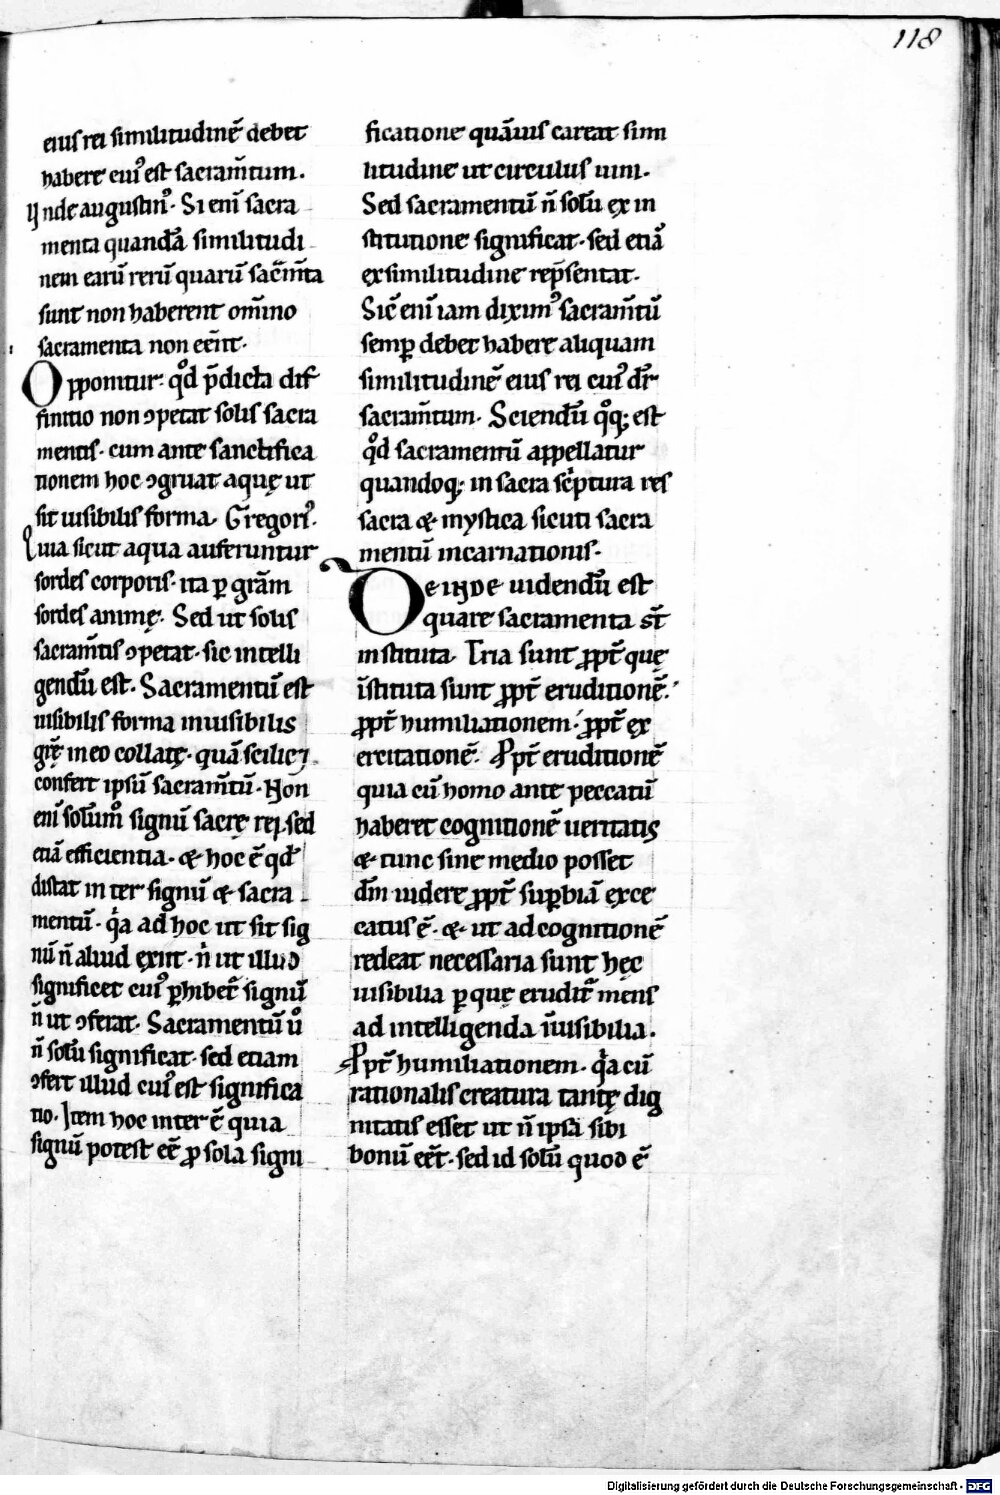 118
eius rei similitudinē debet
habere eiꝰ est sacram̄tum.
Vnde augustinꝰ. Si enī sacra
menta quandā similitudi
nem earū rerū quarū sac̄m̄ta
sunt non haberent om̄ino
sacramenta non eēnt.
Opponitur. qd̊ p̄dicta dif
finitio non ꝯpetat solis sacra
mentis. cum ante sanctifica
tionem hoc ꝯgruat aquę ut
sit uisibilis forma. Gregoriꝰ.
Quia sicut aqua auferuntur
sordes corporis. ita ꝑ grām
sordes animę. Sed ut solis
sacram̄tis ꝯpetat. sic intelli
gendū est. Sacramentū est
uisibilis forma inuisibilis
grę̄ in eo collatę. quā scilicꝫ
confert ipsū sacram̄tū. Non
enī solummͦ signū sacrę rei. sed
etiā efficientia. & hoc ē qd̓
distat inter signū & sacra
mentū. qͥa ad hoc ut sit sig
nū n̄ aliud exiit. nͥ ut illud
significet cuiꝰ ꝑhibet̄ signū
n̄ ut ꝯferat. Sacramentū uͦ
n̄ solū significat. sed etiam
ꝯfert illud cuiꝰ est significa
tio. Item hoc inter ē quia
signū potest eē̄ ꝓ sola signi
ficatione quāuis careat simi
litudine ut circulus uini.
Sed sacramentū n̄ solū ex in
stitutione significat. sed etiā
ex similitudine rep̄sentat.
Sic̄ enī iam diximꝰ sacram̄tū
semꝑ debet habere aliquam
similitudinē eius rei cuiꝰ dr̄
sacram̄tum. Sciendū qͦqꝫ est
qd̊ sacramentū appellatur
quandoqꝫ in sacra scͥptura res
sacra & mystica sicuti sacra
mentū incarnationis.
Deinde uidendū est
quare sacramenta st̄
instituta. Tria sunt ꝓpt̄ quę
īstituta sunt ꝓpt̄ eruditionē.
ꝓpt̄ humiliationem. ꝓpt̄ ex
ercitationē. Ꝓpt̄ eruditionē
quia cū homo ante peccatū
haberet cognitionē ueritatis
& tunc sine medio posset
dm̄ uidere ꝓpt̄ suꝑbiā exce
catus ē. & ut ad cognitionē
redeat necessaria sunt hęc
uisibilia ꝑ quę erudit̄ mens
ad intelligenda īuisibilia.
Ꝓpt̄ humiliationem. qͥa cū
rationalis creatura tantę dig
nitatis esset ut n̄ ipsā sibi
bonū eēt̄. sed id solū quod ē
Digitalisierung gefördert durch die Deutsche Forschungsgemeinschaft - DFG